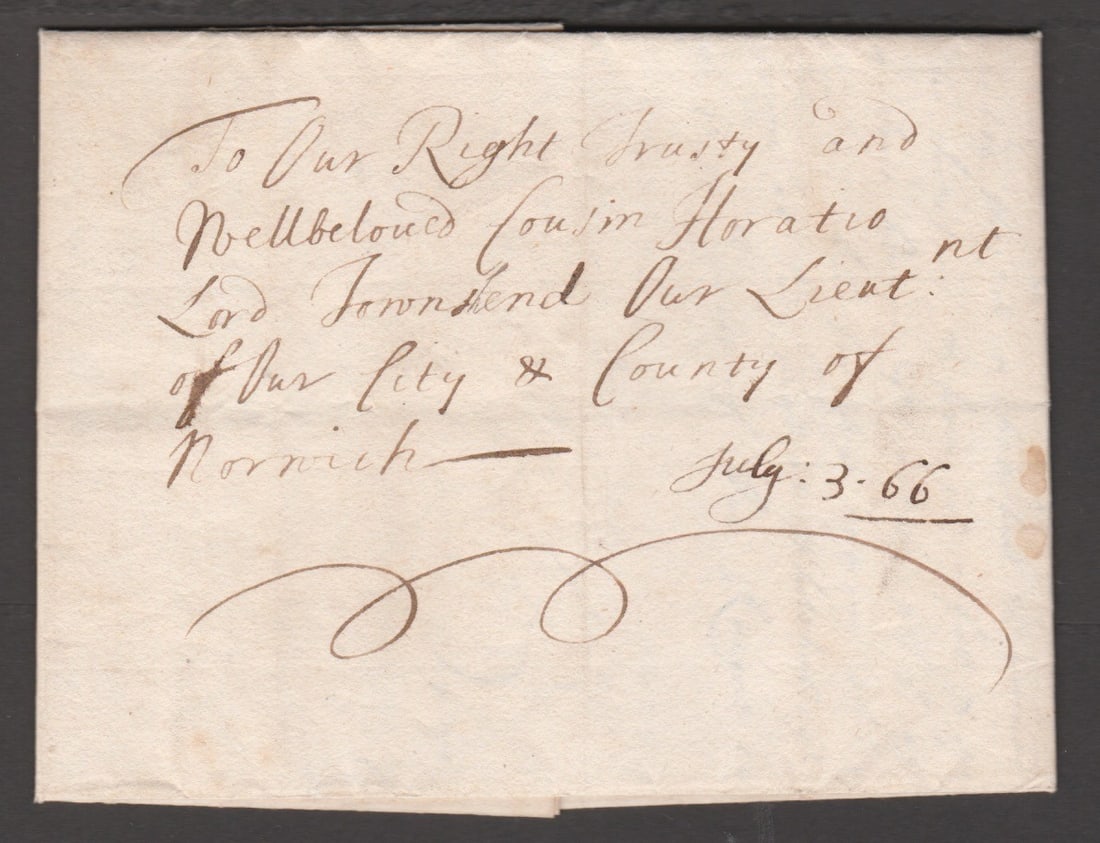 To Our Right Trusty and
Wellbeloued Cousin Horatio
Lord Townshend Our Lieut:nt
of Our City & County of
Norwich
July: 3. 66